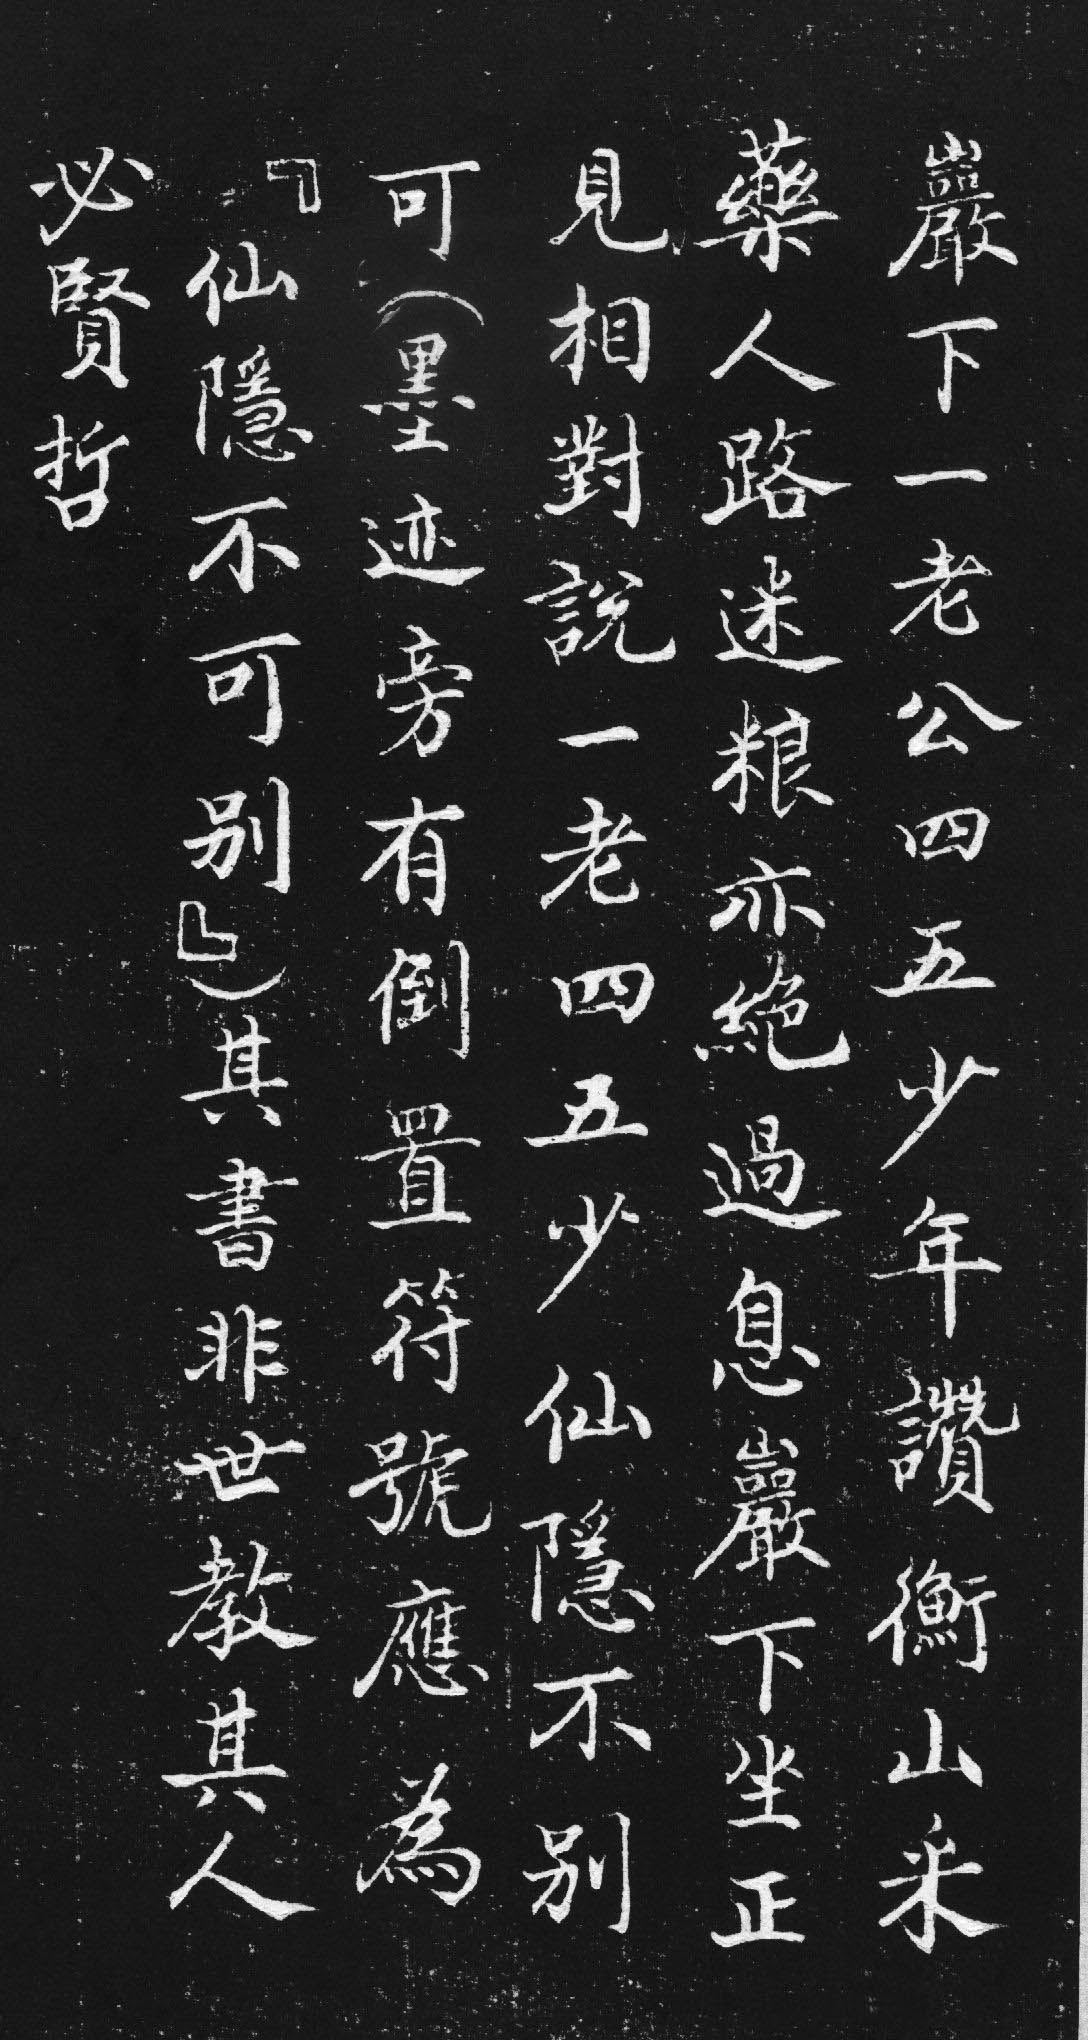 巖下一老公四五少年讚衡山采
藥人路迷粮亦絶過息巖下坐正
見相對說一老四五少仙隱不别
可（墨迹旁有倒置符號應為
『仙隱不可别』）其書非世教其人
必賢哲